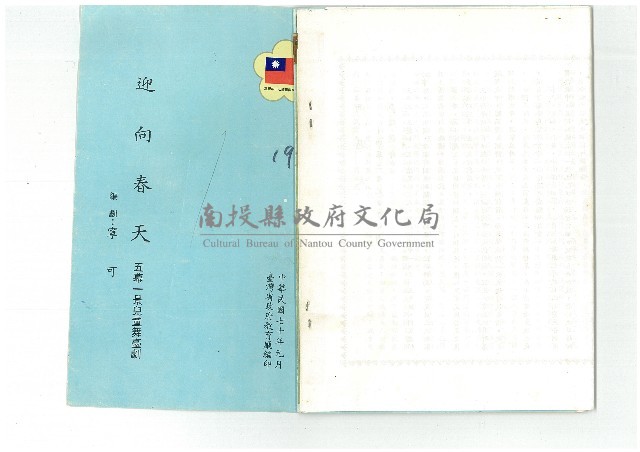 迎向春天
五幕一景兒童舞臺劇
編劇:寧可
19
中華民國七十年元月
臺灣省政府教育廳編印
南投縣政府文化局
Cultural Bureau of Nantou County Government